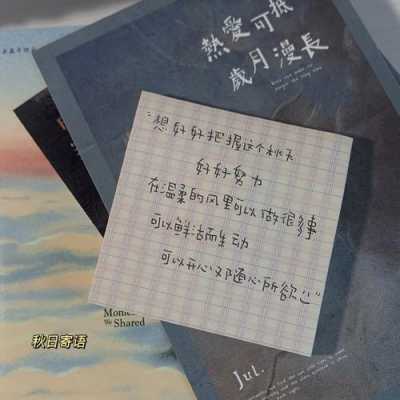 熱愛可抵
歲月漫長
“想好好把握这个秋天
好好努力
在温柔的风里可以做很多事
可以鲜活而生动
可以开心又随心所欲”
Moment
We Shared
秋日寄语
Jul.